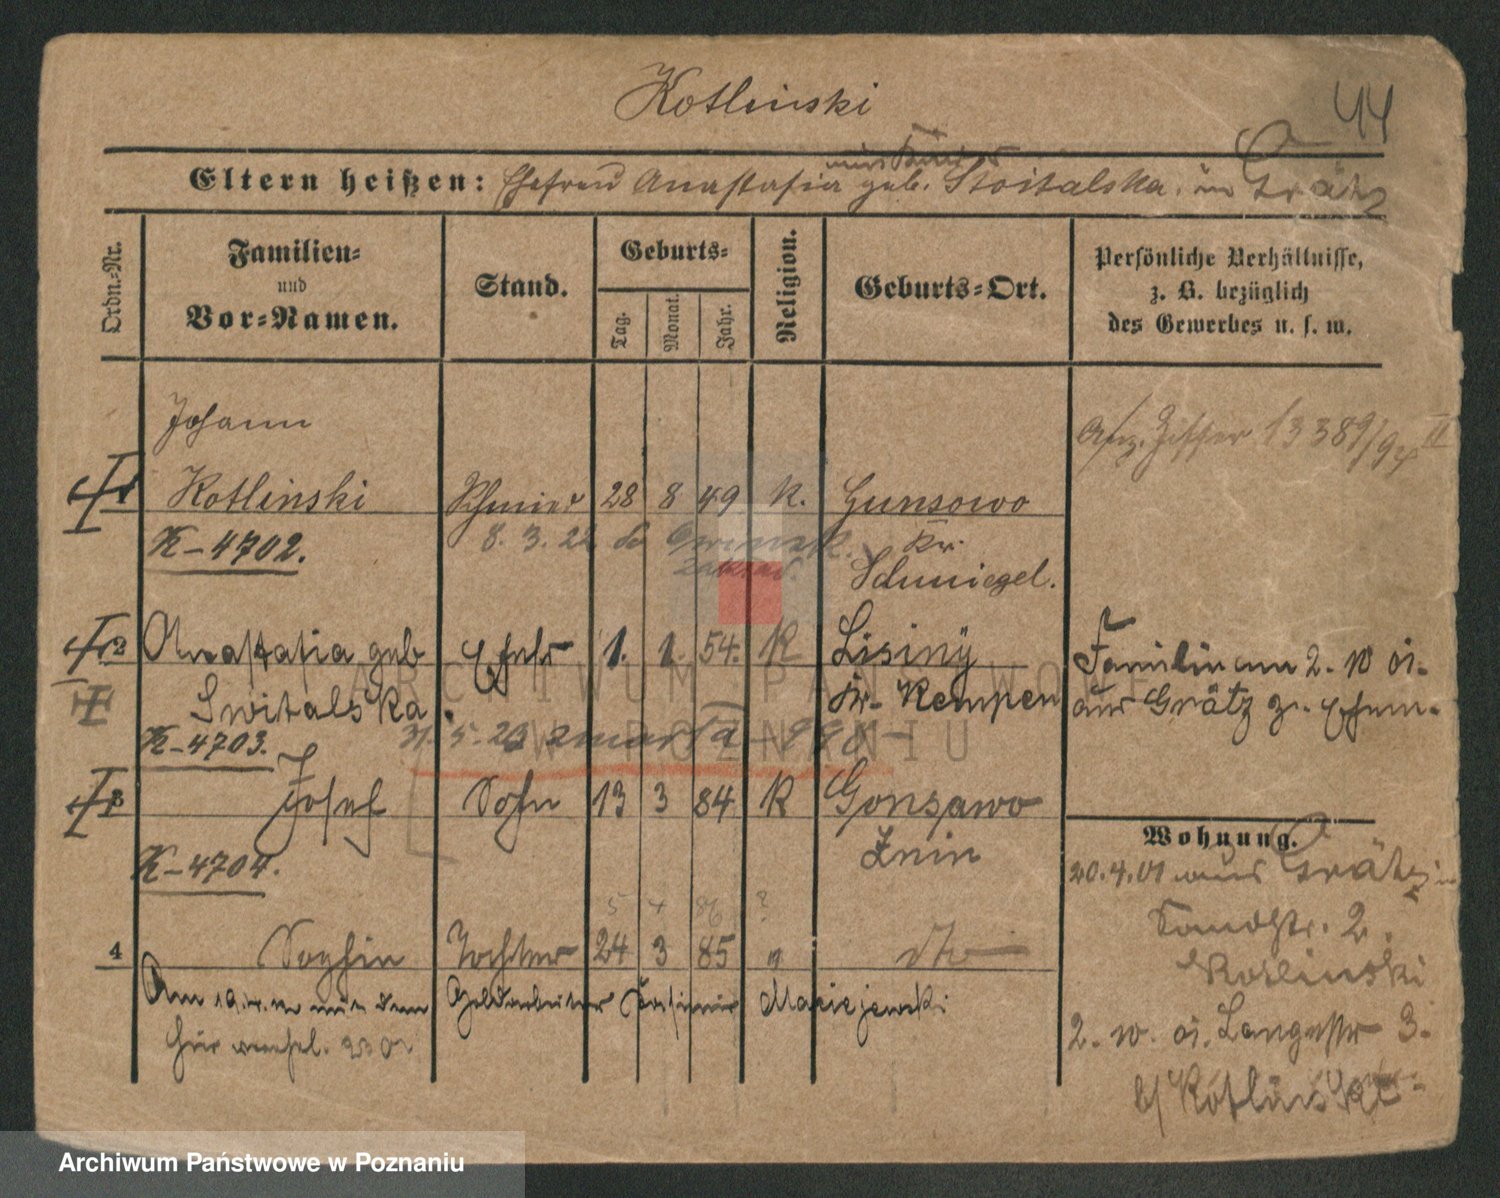 Kotlinski
44
Eltern heißen: Ehefrau Anastasia geb. Switalska. in Grätz
Ordn.-Nr.
Familien- und Vor-Namen.
Stand.
Geburts-
Tag. Monat. Jahr.
Religion.
Geburts-Ort.
Persönliche Verhältnisse,
z. B. bezüglich
des Gewerbes u. s. w.
Johann
1 Kotlinski Schmied 28 8 49 K. Gunsowo
K-4702. 8. 3. 22 Kr.
Schmiegel.
2 Anastasia geb Ehefr 1. 1. 54. K Lisiny
Switalska Kr. Kempen
K-4703. 31. 5. 23 zmarła
3 Josef Sohn 13 3 84 K Gonsawo
K-4704. Znin
5 4 86 ?
4 Sophie Tochter 24 3 85 " dto
Am mit dem Goldarbeiter Kasimir Maciejewski
hier verehel.
Anz. Ziffer 13389/9 II
Familie am 2. 10 01.
aus Grätz z. Ehem.
Wohnung.
20.4.01 aus Grätz in
Sandstr. 2.
Kotlinski
2. 10. 01. Langestr 3.
b/ Kotlinski
ARCHIWUM PAŃSTWOWE
W POZNANIU
Archiwum Państwowe w Poznaniu